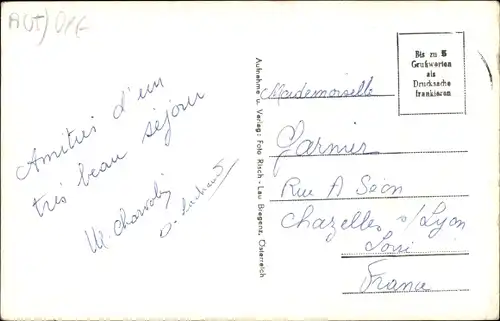 Amitiés d'un
très beau séjour
Aufnahme u. Verlag: Foto Risch-Lau Bregenz, Österreich
Bis zu 5
Grußworten
als
Drucksache
frankieren
Mademoiselle
Garnier
Rue A Séon
Chazelles s/Lyon
Loire
France